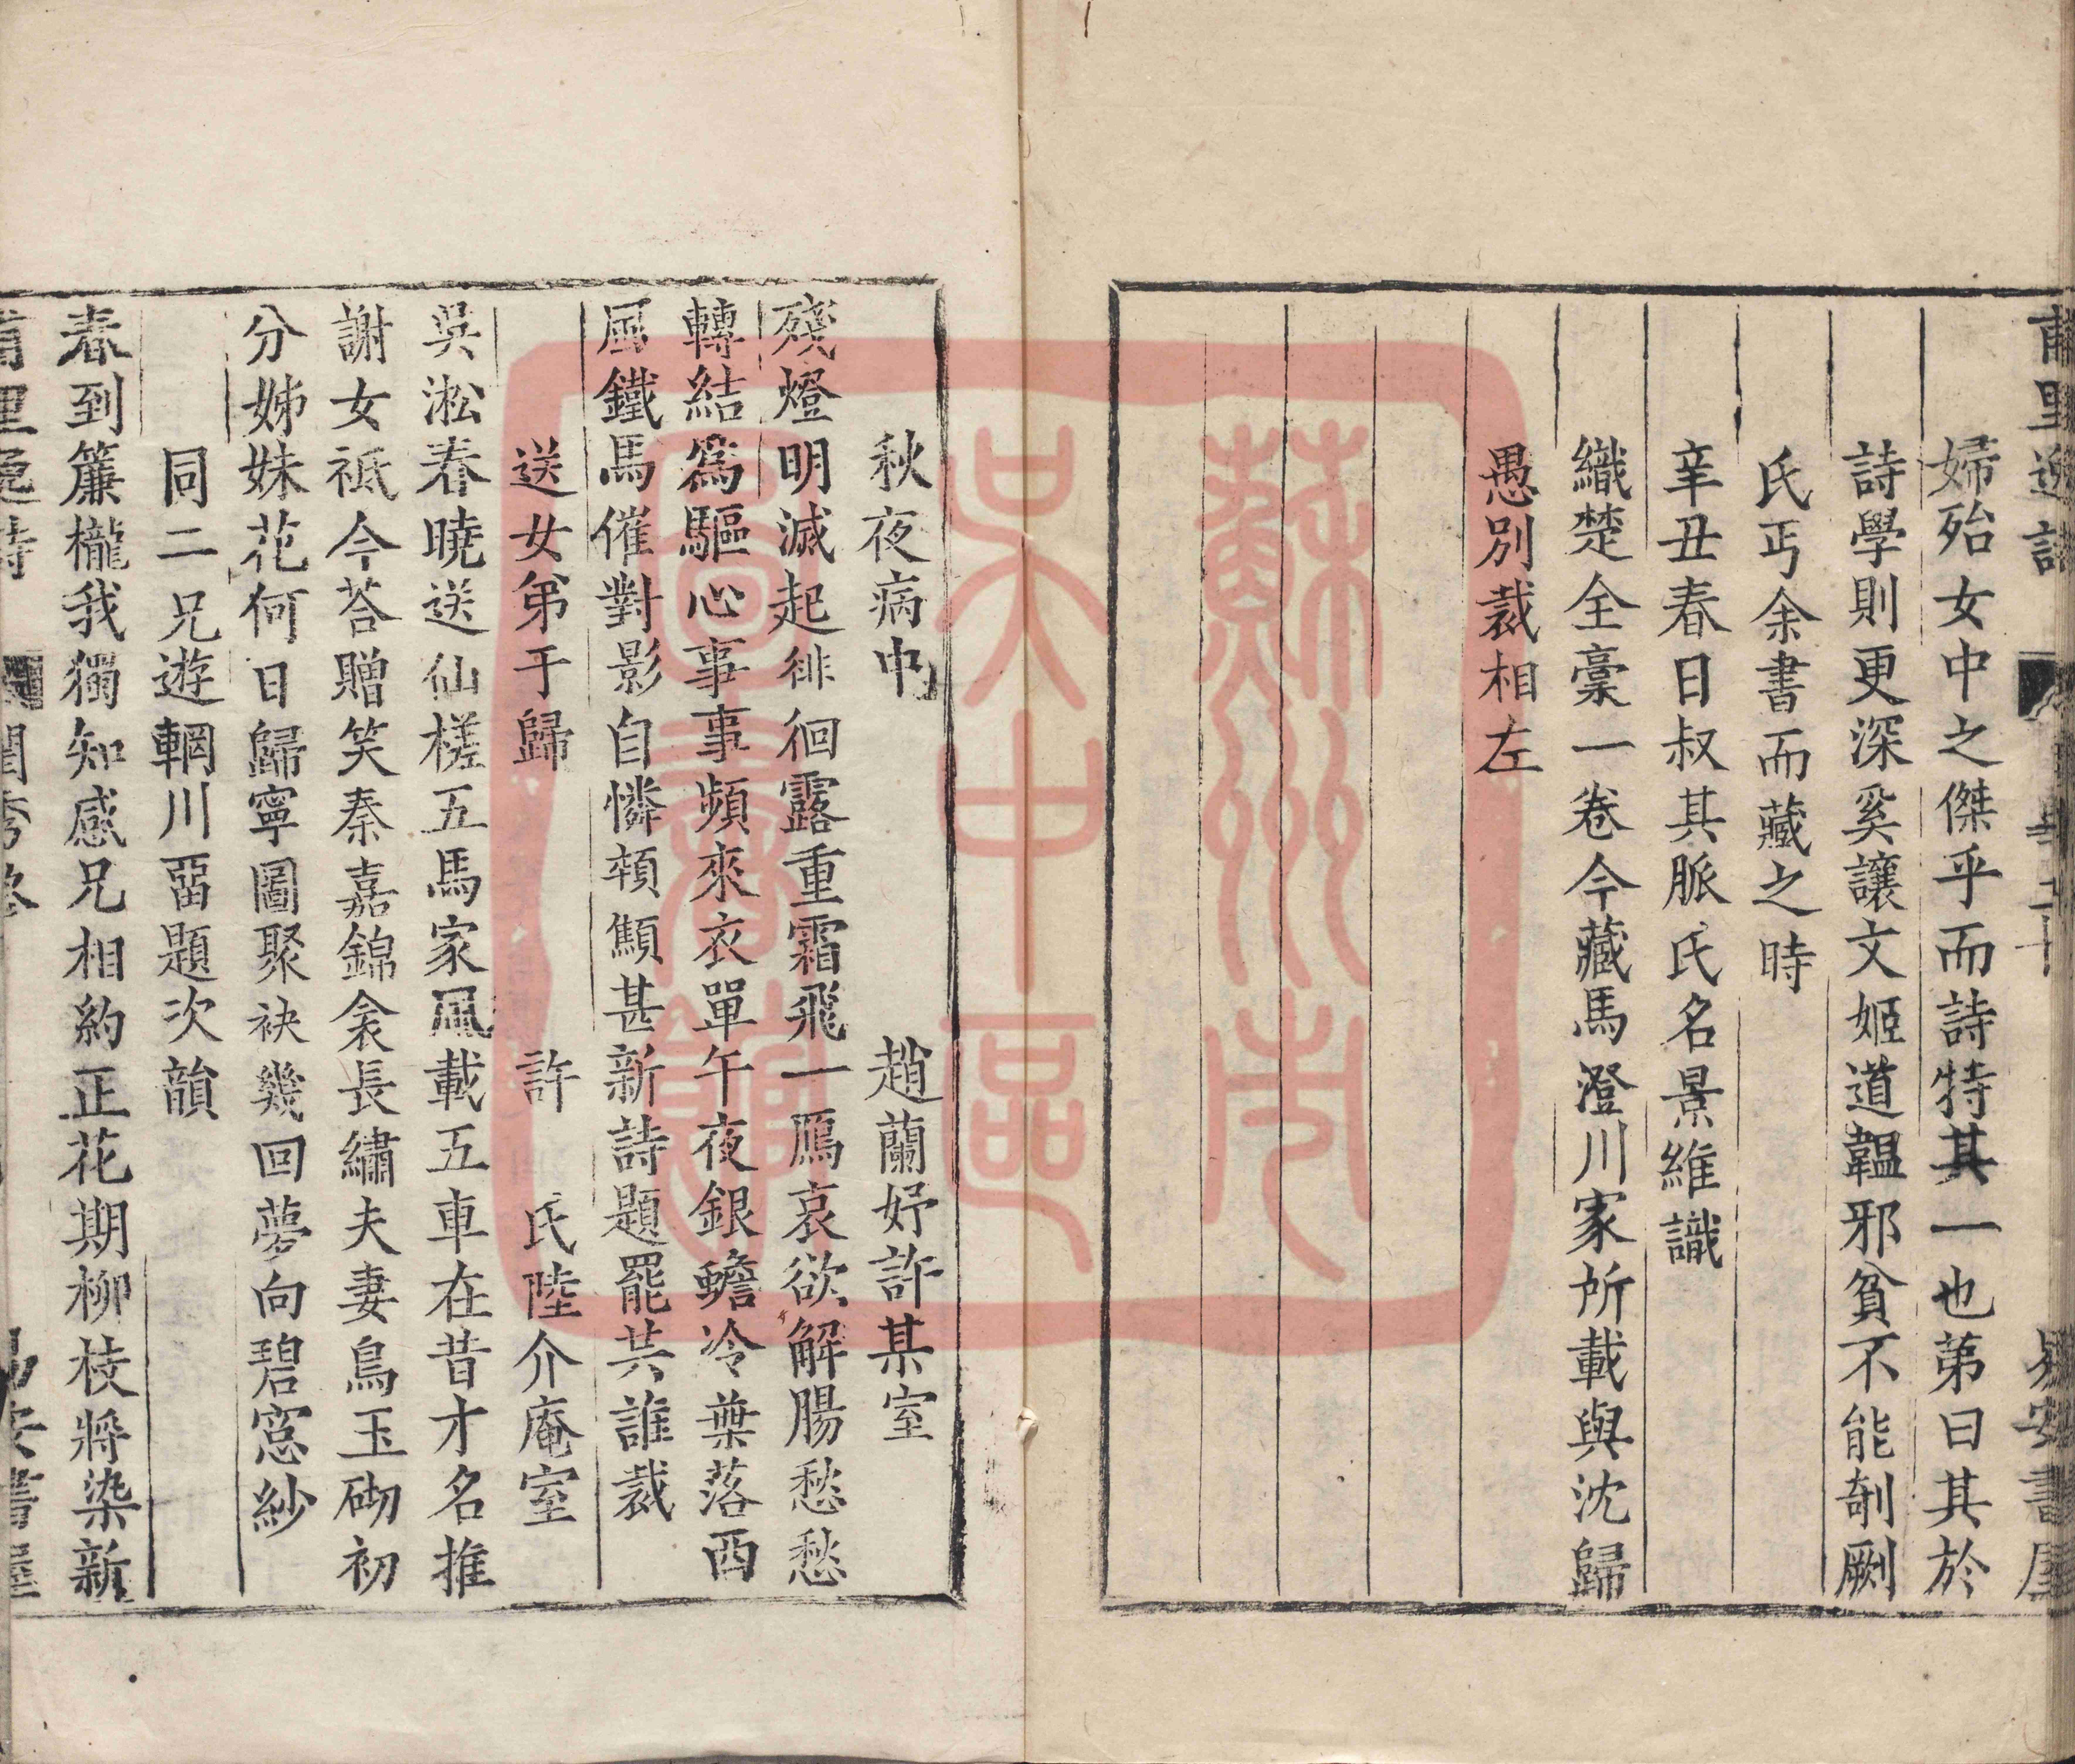 婦殆女中之傑乎而詩特其一也苐曰其於
詩學則更深奚讓文姬道韞邪貧不能剞劂
氏丐余書而藏之時
辛丑春日叔其脈氏名景維識
織楚全稾一卷今藏馬澄川家所載與沈歸
愚別裁相左
秋夜病中　趙蘭妤許某室
殘燈明滅起徘徊露重霜飛一鴈哀欲解腸愁愁
轉結為驅心事事頻來衣單午夜銀蟾冷葉落西
風鐵馬催對影自憐顇顦甚新詩題罷共誰裁
送女弟于歸　許　氏陸介庵室
吳淞春曉送仙槎五馬家風載五車在昔才名推
謝女祇今荅贈笑秦嘉錦衾長繡夫妻鳥玉砌初
分姊妹花何日歸寧圖聚袂幾回夢向碧窓紗
同二兄遊輞川畱題次韻
春到簾櫳我獨知感兄相約正花期柳枝將染新
甫里逸詩
易安書屋
蘇州市
吳中區
圖書館